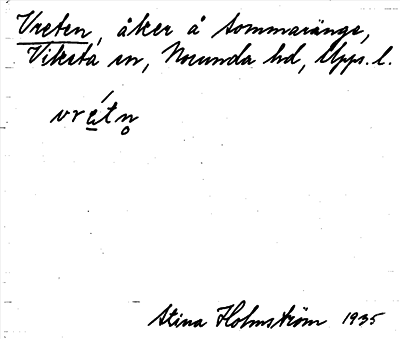 Vreten, åker å Sommaränge,
Viksta sn, Norunda hd, Upps. l.
vré̲tn̥
Stina Holmström 1935